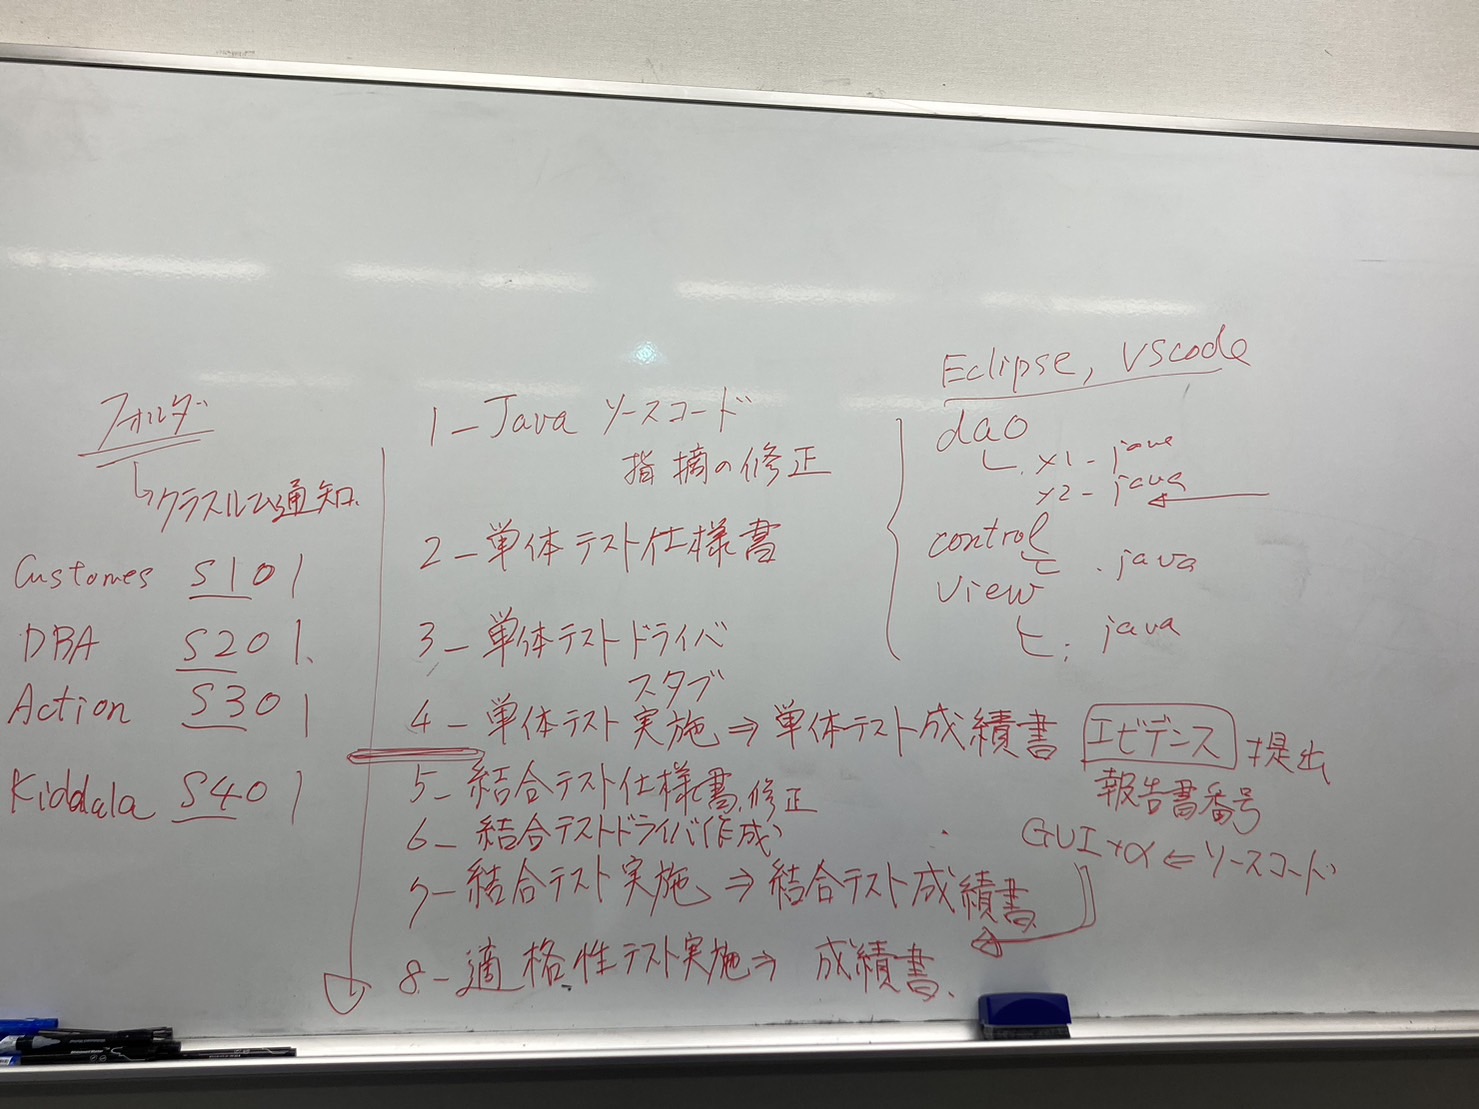 フォルダ
クラスルム通知.
Customes S101
DBA S201.
Action S301
Kiddala S401
1-Java ソースコード
指摘の修正
2-単体テスト仕様書
3-単体テストドライバ
スタブ
4-単体テスト実施⇒単体テスト成績書 エビデンス 提出
報告書番号
5-結合テスト仕様書.修正
6-結合テストドライバ作成
GUI+α⇐ソースコード
7-結合テスト実施⇒結合テスト成績書
8-適格性テスト実施⇒成績書.
Eclipse, VScode
dao
x1-java
x2-java
control
.java
view
.java